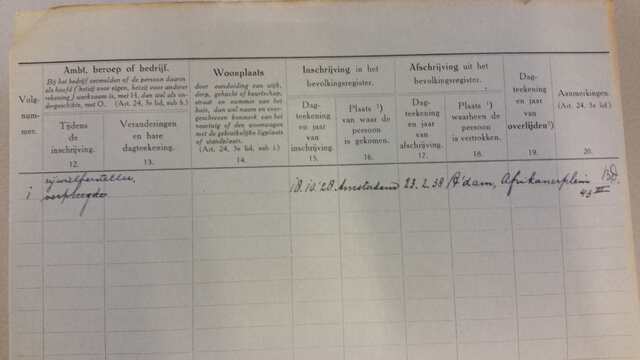 Volg-
nummer.
Ambt, beroep of bedrijf.
Bij het bedrijf vermelden of de persoon daarin
als hoofd (hetzij voor eigen, hetzij voor andere
rekening) werkzaam is, met H, dan wel als on-
dergeschikte, met O. (Art. 24, 3e lid, sub b.)
Tijdens
de
inschrijving.
12.
Veranderingen
en hare
dagteekening.
13.
Woonplaats
door aanduiding van wijk,
dorp, gehucht of buurtschap,
straat en nummer van het
huis, dan wel naam en over-
geschreven kenmerk van het
vaartuig of den woonwagen
met de gebruikelijke ligplaats
of standplaats.
(Art. 24, 3e lid, sub k.)
14.
Inschrijving in het
bevolkingsregister.
Dag-
teekening
en jaar
van
inschrijving.
15.
Plaats ¹)
van waar de
persoon
is gekomen.
16.
Afschrijving uit het
bevolkingsregister.
Dag-
teekening
en jaar
van
afschrijving.
17.
Plaats ¹)
waarheen de
persoon
is vertrokken.
18.
Dag-
teekening
en jaar
van
overlijden¹)
19.
Aanmerkingen.
(Art. 24, 3e lid.)
20.
rijwielhersteller
1 verpleegde 18.10.'28. Amsterdam 23.2.38 A'dam, Afrikanerplein
43 III